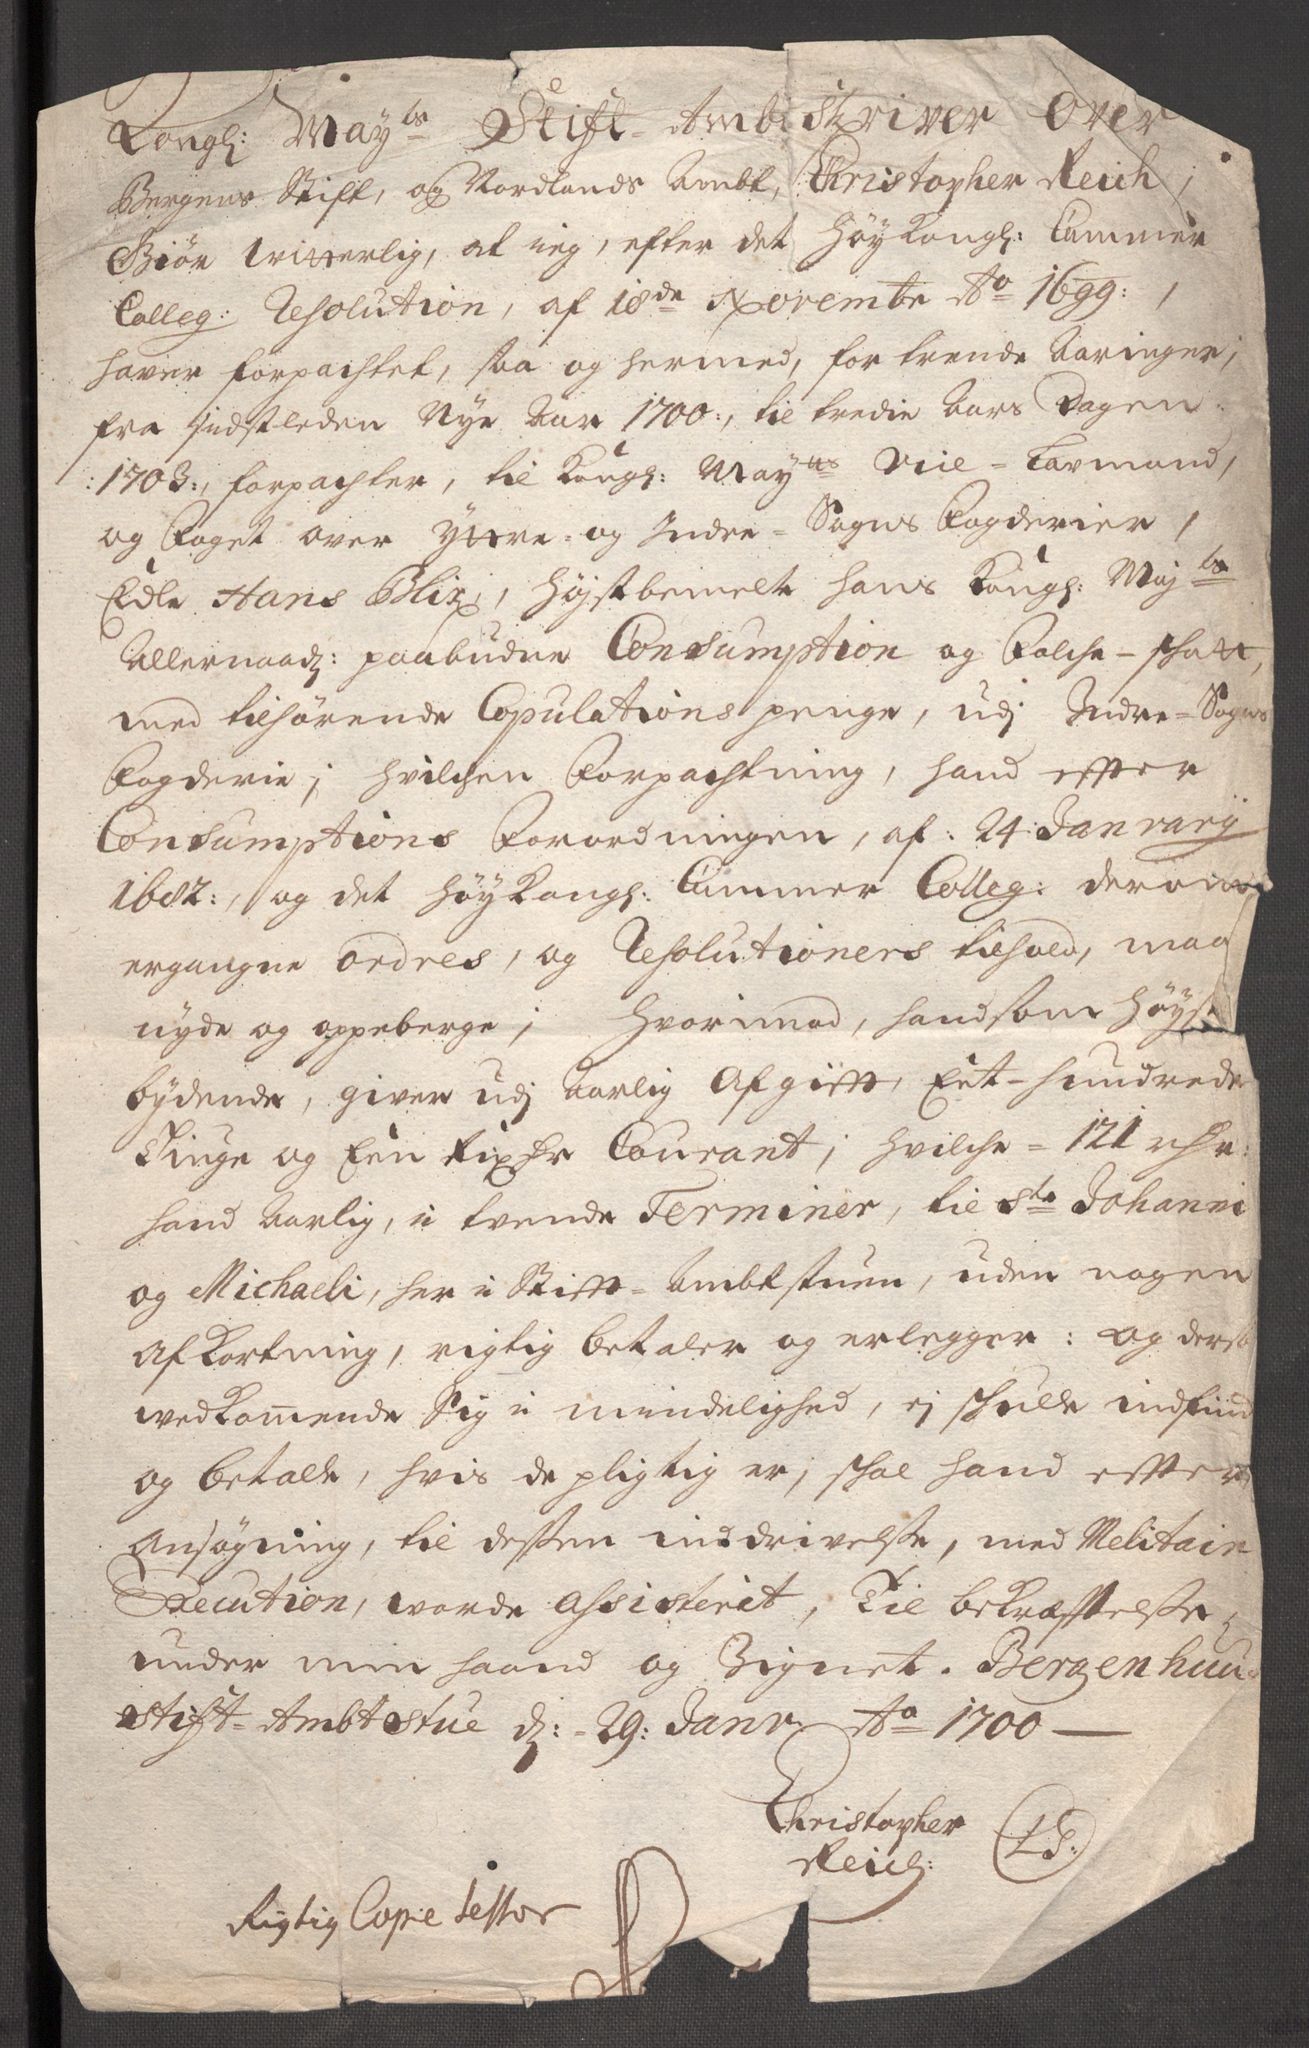 Kongl: Mayts Stift-Ambtskriver Over
Bergens Stift, og Nordlands Ambt, Christopher Reich,
Giør Witterlig, at ieg, efter det Høy Kongl: Cammer
Colleg: Resolution, af 18de Novembr Ao 1699:,
haver forpachtet, saa og hermed, for trende Aaringer,
fra sidstleden Nye Aar 1700:, til tredie Aars Dagen
:1703:, forpachter, til Kongl: Mayts Vice-Laumand,
og Foget over Yttre- og Indre-Sogns Fogderier,
Edle Hans Blix, Høystbemelte hans Kongl: Mayts
Allernaad: paabudne Consumption og Folche-Schatt,
med tilhørende Copulations penge, udj Indre-Sogns
Fogderie; hvilchen Forpachtning, hand efter
Consumptions Forordningen, af: 24 Januarij
1682:, og det Høy Kongl: Cammer Colleg: derom
ergangne Ordres, og Resolutioners tilhold, maa
nyde og oppeberge; Hvorimod, hand som Høyst
bydende, giver udj Aarlig Afgift, Eet-hundrede
Tiuge og Een Rixdr Courant; hvilche = 121 rdr:
hand Aarlig, i tvende Terminer, til Ste Johanni
og Michaeli, her i Stift-Ambtstuen, uden nogen
Afkortning, rigtig betaler og erlegger: Og ders
vedkommende Sig i mindelighed, ej schulde indfind
og betale, hvis de pligtig er, schal hand efter
Ansøgning, til dessen inddrivelse, med Melitair
Execution, vorde assisterit, Til bekræftelse,
under min haand og Zignet. Bergenhuu
Stift-Ambtstue d: 29: Janr Ao 1700
Christopher
Reich:
LS:
Rigtig Copie testor